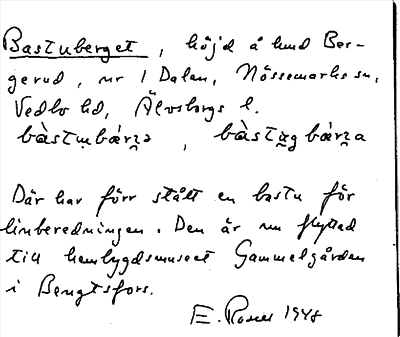 Bastuberget, höjd å hmd Ber-
gerud, nr 1 Dalen, Nössemarks sn,
Vedbo hd, Älvsborgs l.
bàstu̥bær̥ɜ, bàstu̥g bár̥ɜa
Där har förr stått en bastu för
linberedningen. Den är nu flyttad
till hembygdsmuseet Gammelgården
i Bengtsfors.
E. Rosell 1948